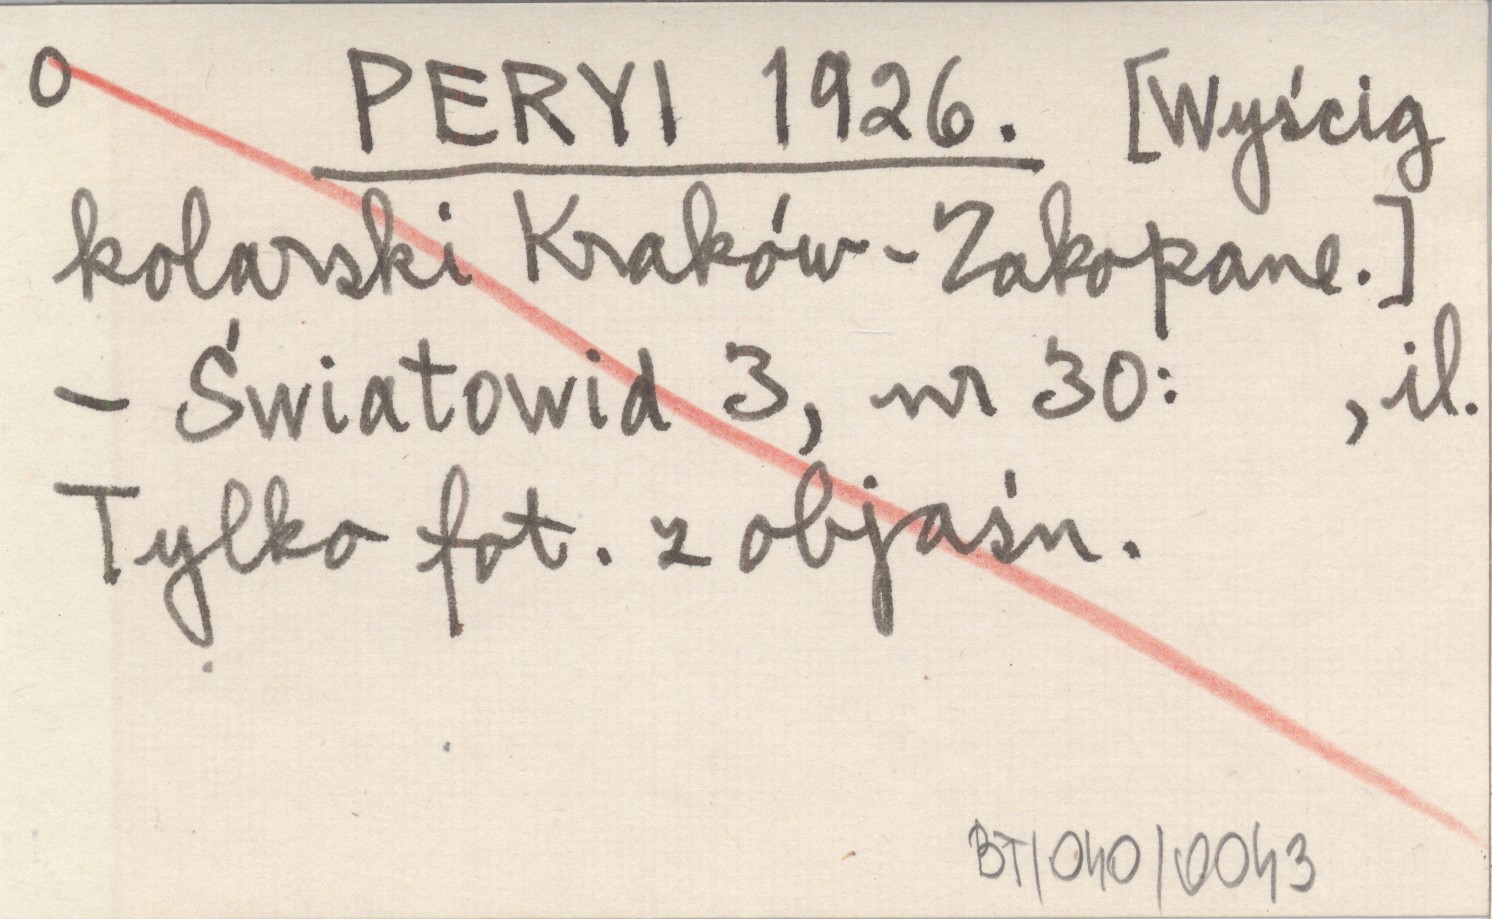 O PERYI 1926. [Wyścig
kolarski Kraków-Zakopane.]
- Światowid 3, nr 30: , il.
Tylko fot. z objaśn.
BT/040/0043